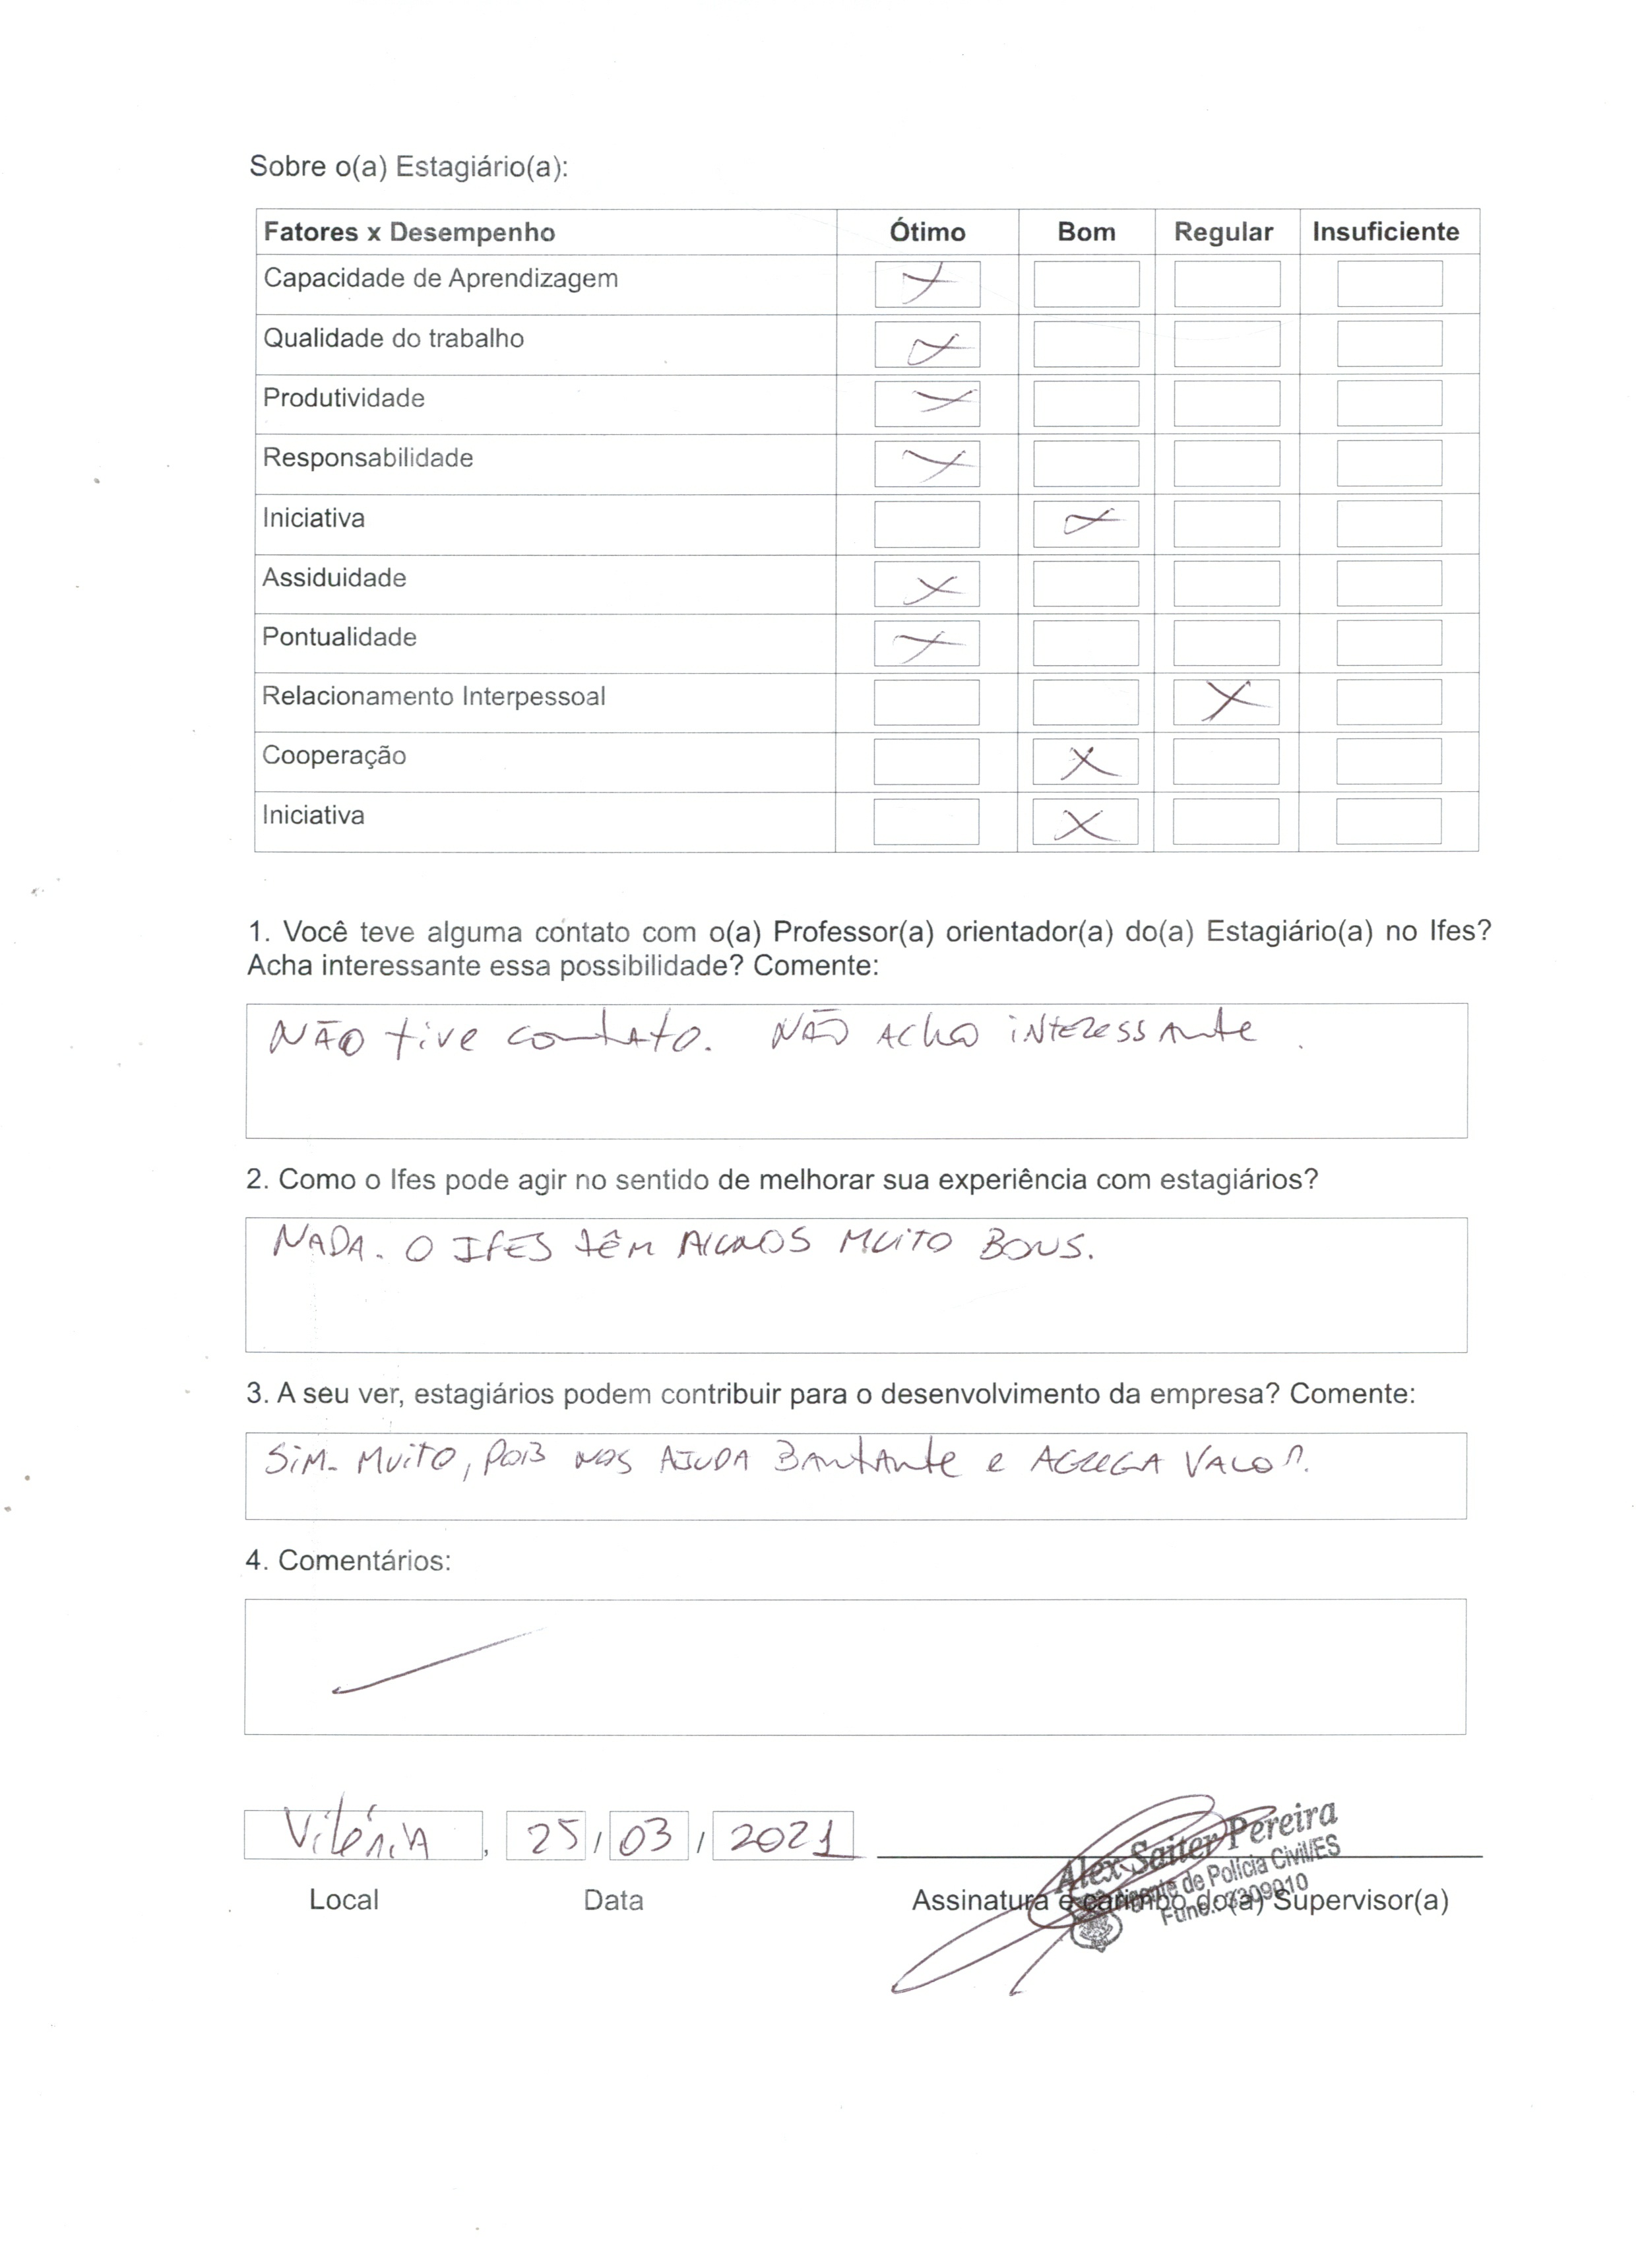 Sobre o(a) Estagiário(a):
Fatores x Desempenho Ótimo Bom Regular Insuficiente
Capacidade de Aprendizagem X
Qualidade do trabalho X
Produtividade X
Responsabilidade X
Iniciativa X
Assiduidade X
Pontualidade X
Relacionamento Interpessoal X
Cooperação X
Iniciativa X
1. Você teve alguma contato com o(a) Professor(a) orientador(a) do(a) Estagiário(a) no Ifes?
Acha interessante essa possibilidade? Comente:
NÃO tive contato. NÃO AChO iNTERESSAnte.
2. Como o Ifes pode agir no sentido de melhorar sua experiência com estagiários?
NADA. O IFES têm AlUNOS MUiTO BONS.
3. A seu ver, estagiários podem contribuir para o desenvolvimento da empresa? Comente:
SiM. MUiTO, POiS NOS AJUDA BAstAnte e AGREGA VALOR.
4. Comentários:
Vitória, 25/03/2021
Alex Saiter Pereira
Agente de Polícia Civil/ES
Func.: 3309010
Local Data Assinatura e carimbo do(a) Supervisor(a)